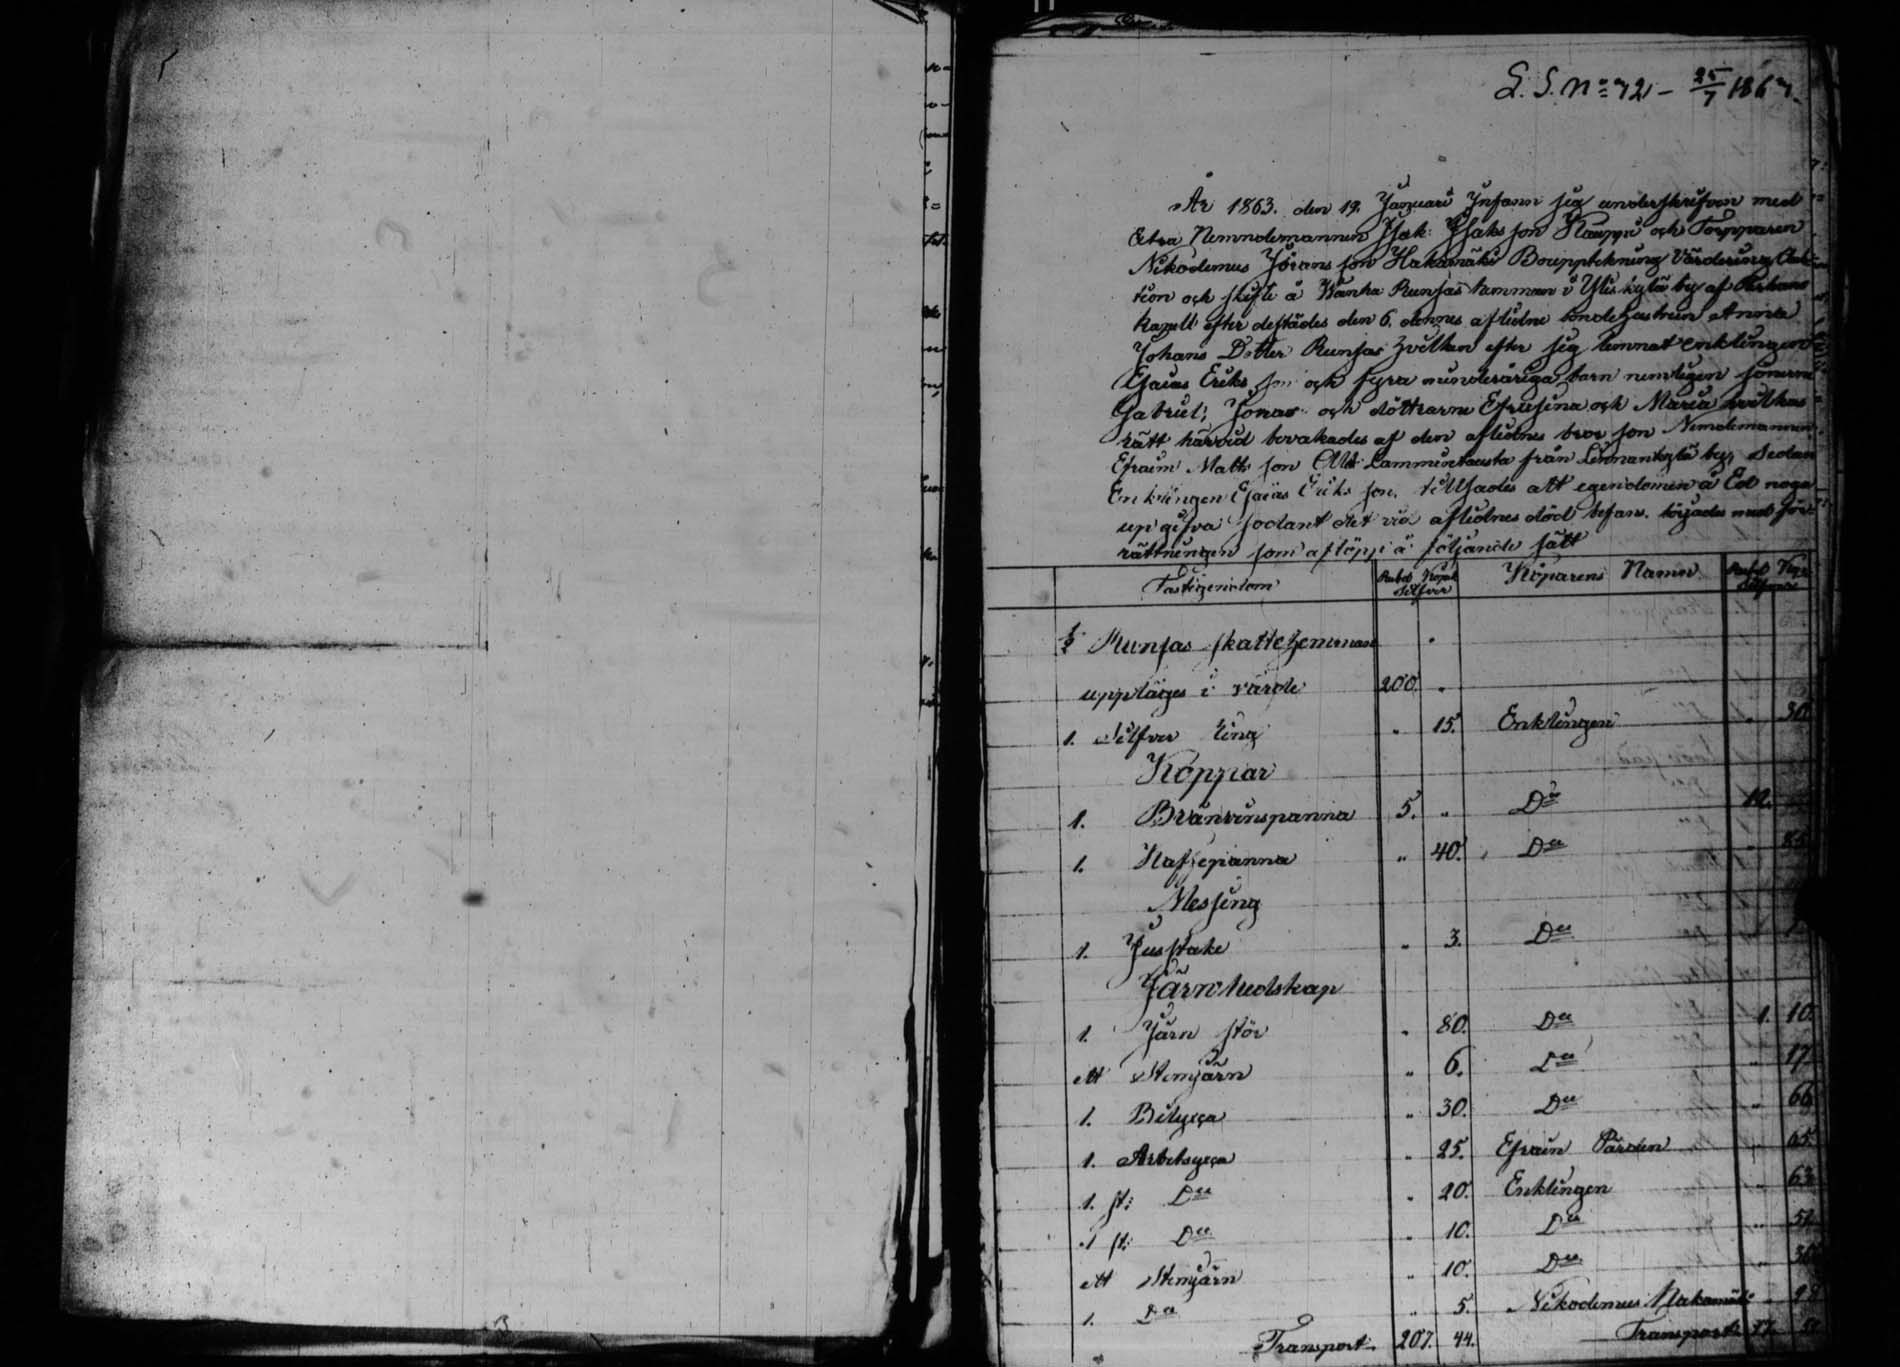 L. S. No 72 - 25/7 1867.
År 1863. den 19. Januari Infann sig underskrifven med
Extra Nemndemannen Isak Isaks son Kauppi och Torpparen
Nikodemus Jörans son Hakamäki Bouppteckning Värdering Auk-
tion och skifte å Wanha Runsas hemman i Yliskylä by af
Kapell efter destädes den 6. dennes aflidne bondehustrun Anna
Johans Dotter Runsas hvilken efter sig lemnat enklingen
Esaias Eriks son och fyra minderåriga barn nemligen sönerne
Gabriel, Jonas och döttrarne Efrusina och Maria hvilkas
rätt härvid bevakades af den aflidnes bror son Nemdemannen
Efraim Matts son Ala Lammintausta från by, Sedan
Enklingen Esaias Eriks son, tillsades att egendomen å Ed noga
upgifva sodant det vid aflidnes död befan. börjades med för-
rättningen som aflöpp å följande sätt
Fastigendom Rubel Kopek Silfver Köparens Namn Rubel Kopek Silfver
½ Runsas skattehemman
upptages i värde 200. "
1. Silfver ring " 15. Enklingen " 30
Koppar
1. Bränvinspanna 5. " Do 12.
1. Kaffepanna " 40. Do " 85
Messing
1. Jusstake " 3. Do
Järn Redskap
1. Järn stör " 80. Do 1. 10.
ett Stemjärn " 6. Do " 17
1. Bilyxa " 30. Do " 66
1. Arbetsyxa " 25. Efraim Pärden " 65.
1. st: Do " 20. Enklingen " 63
1 st: Do " 10. Do " 51
ett Stemjärn " 10. Do
1. Do " 5. Nikodemus Hakamäki
Transport 207. 44. Transport 17.